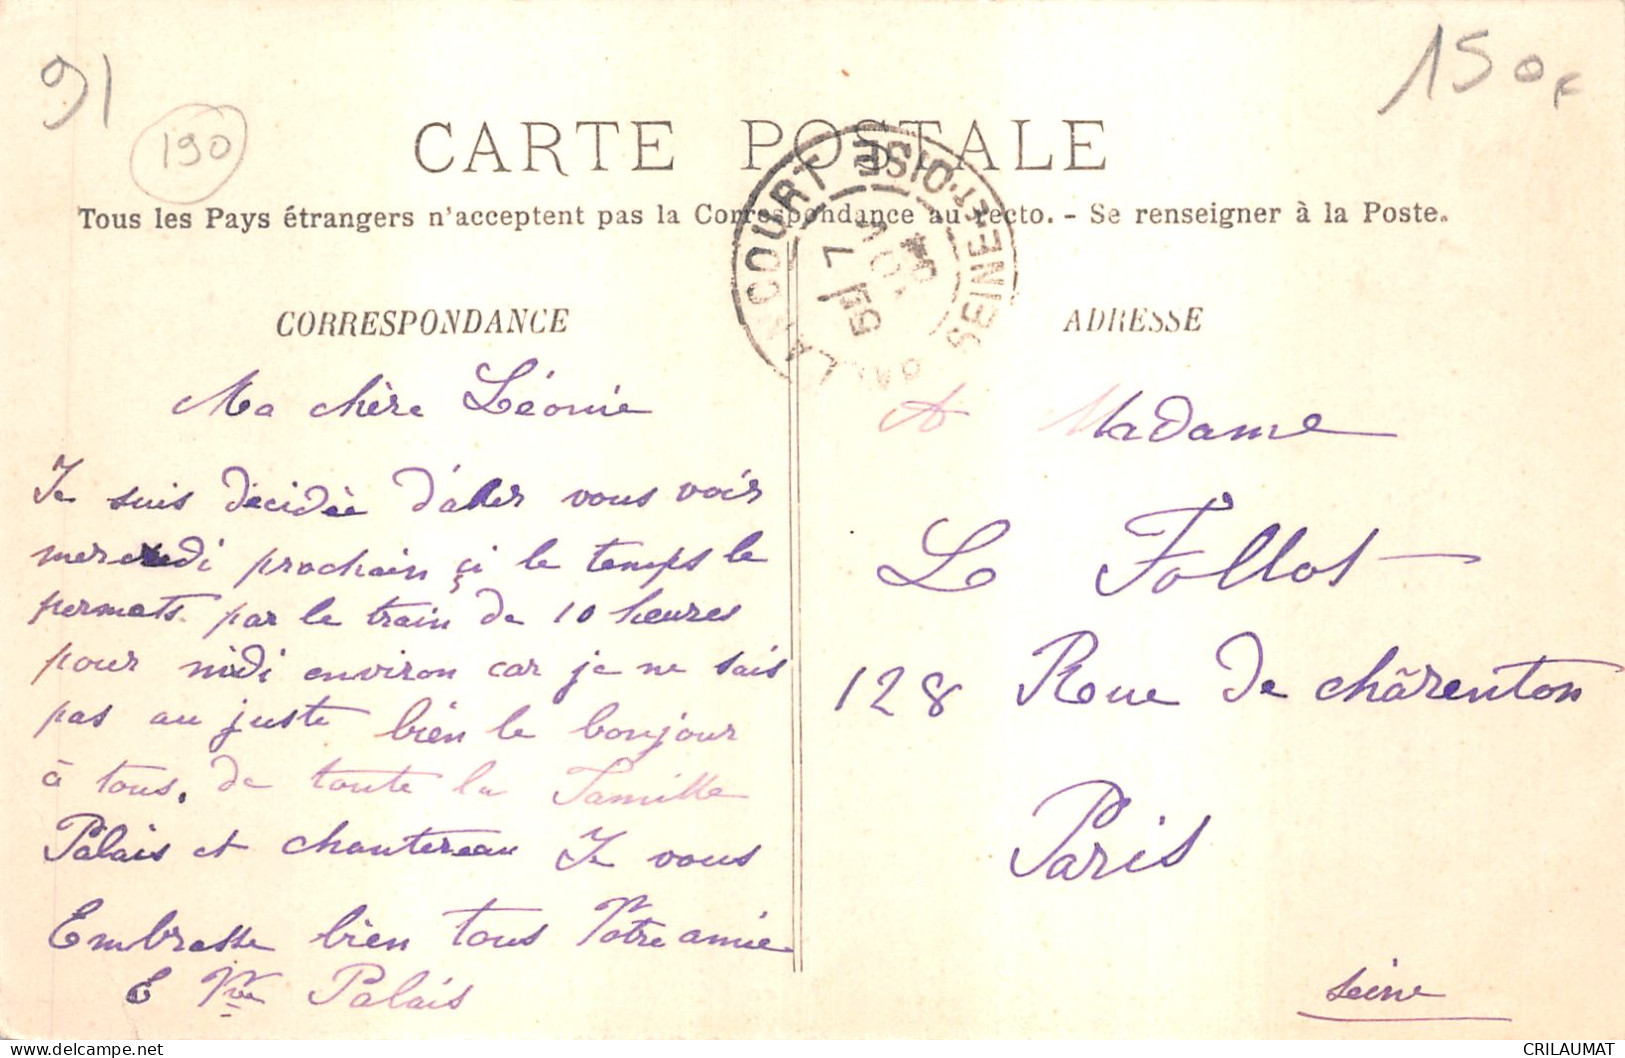 91
190
150F
CARTE POSTALE
Tous les Pays étrangers n'acceptent pas la Correspondance au recto. - Se renseigner à la Poste.
BALLANCOURT SEINE-ET-OISE
CORRESPONDANCE
Ma chère Léonie
Je suis décidèe d'aller vous voir
mercredi prochain çi le temps le
permets. par le train de 10 heures
pour midi environ car je ne sais
pas au juste bien le bonjour
à tous. de toute la Famille
Palais et chantereau Je vous
Embrasse bien tous Votre amie
E Vve Palais
ADRESSE
A Madame
Le Follot
128 Rue de chârenton
Paris
Seine
CRILAUMAT